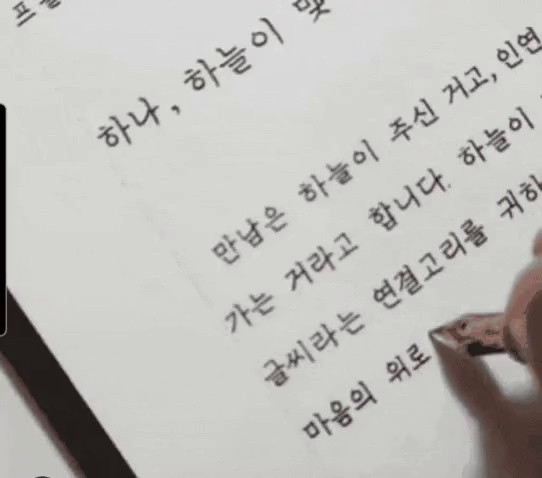 하나, 하늘이
만남은 하늘이 주신 거고, 인연
가는 거라고 합니다. 하늘이
글씨라는 연결고리를 귀하
마음의 위로